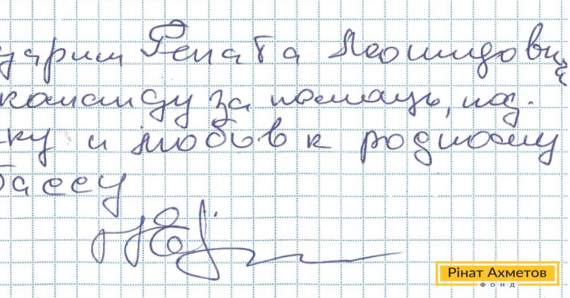 дарим Рената Леонидовича
команду за помощь, под-
ку и любовь к родному
бассу
Рінат Ахметов
ФОНД